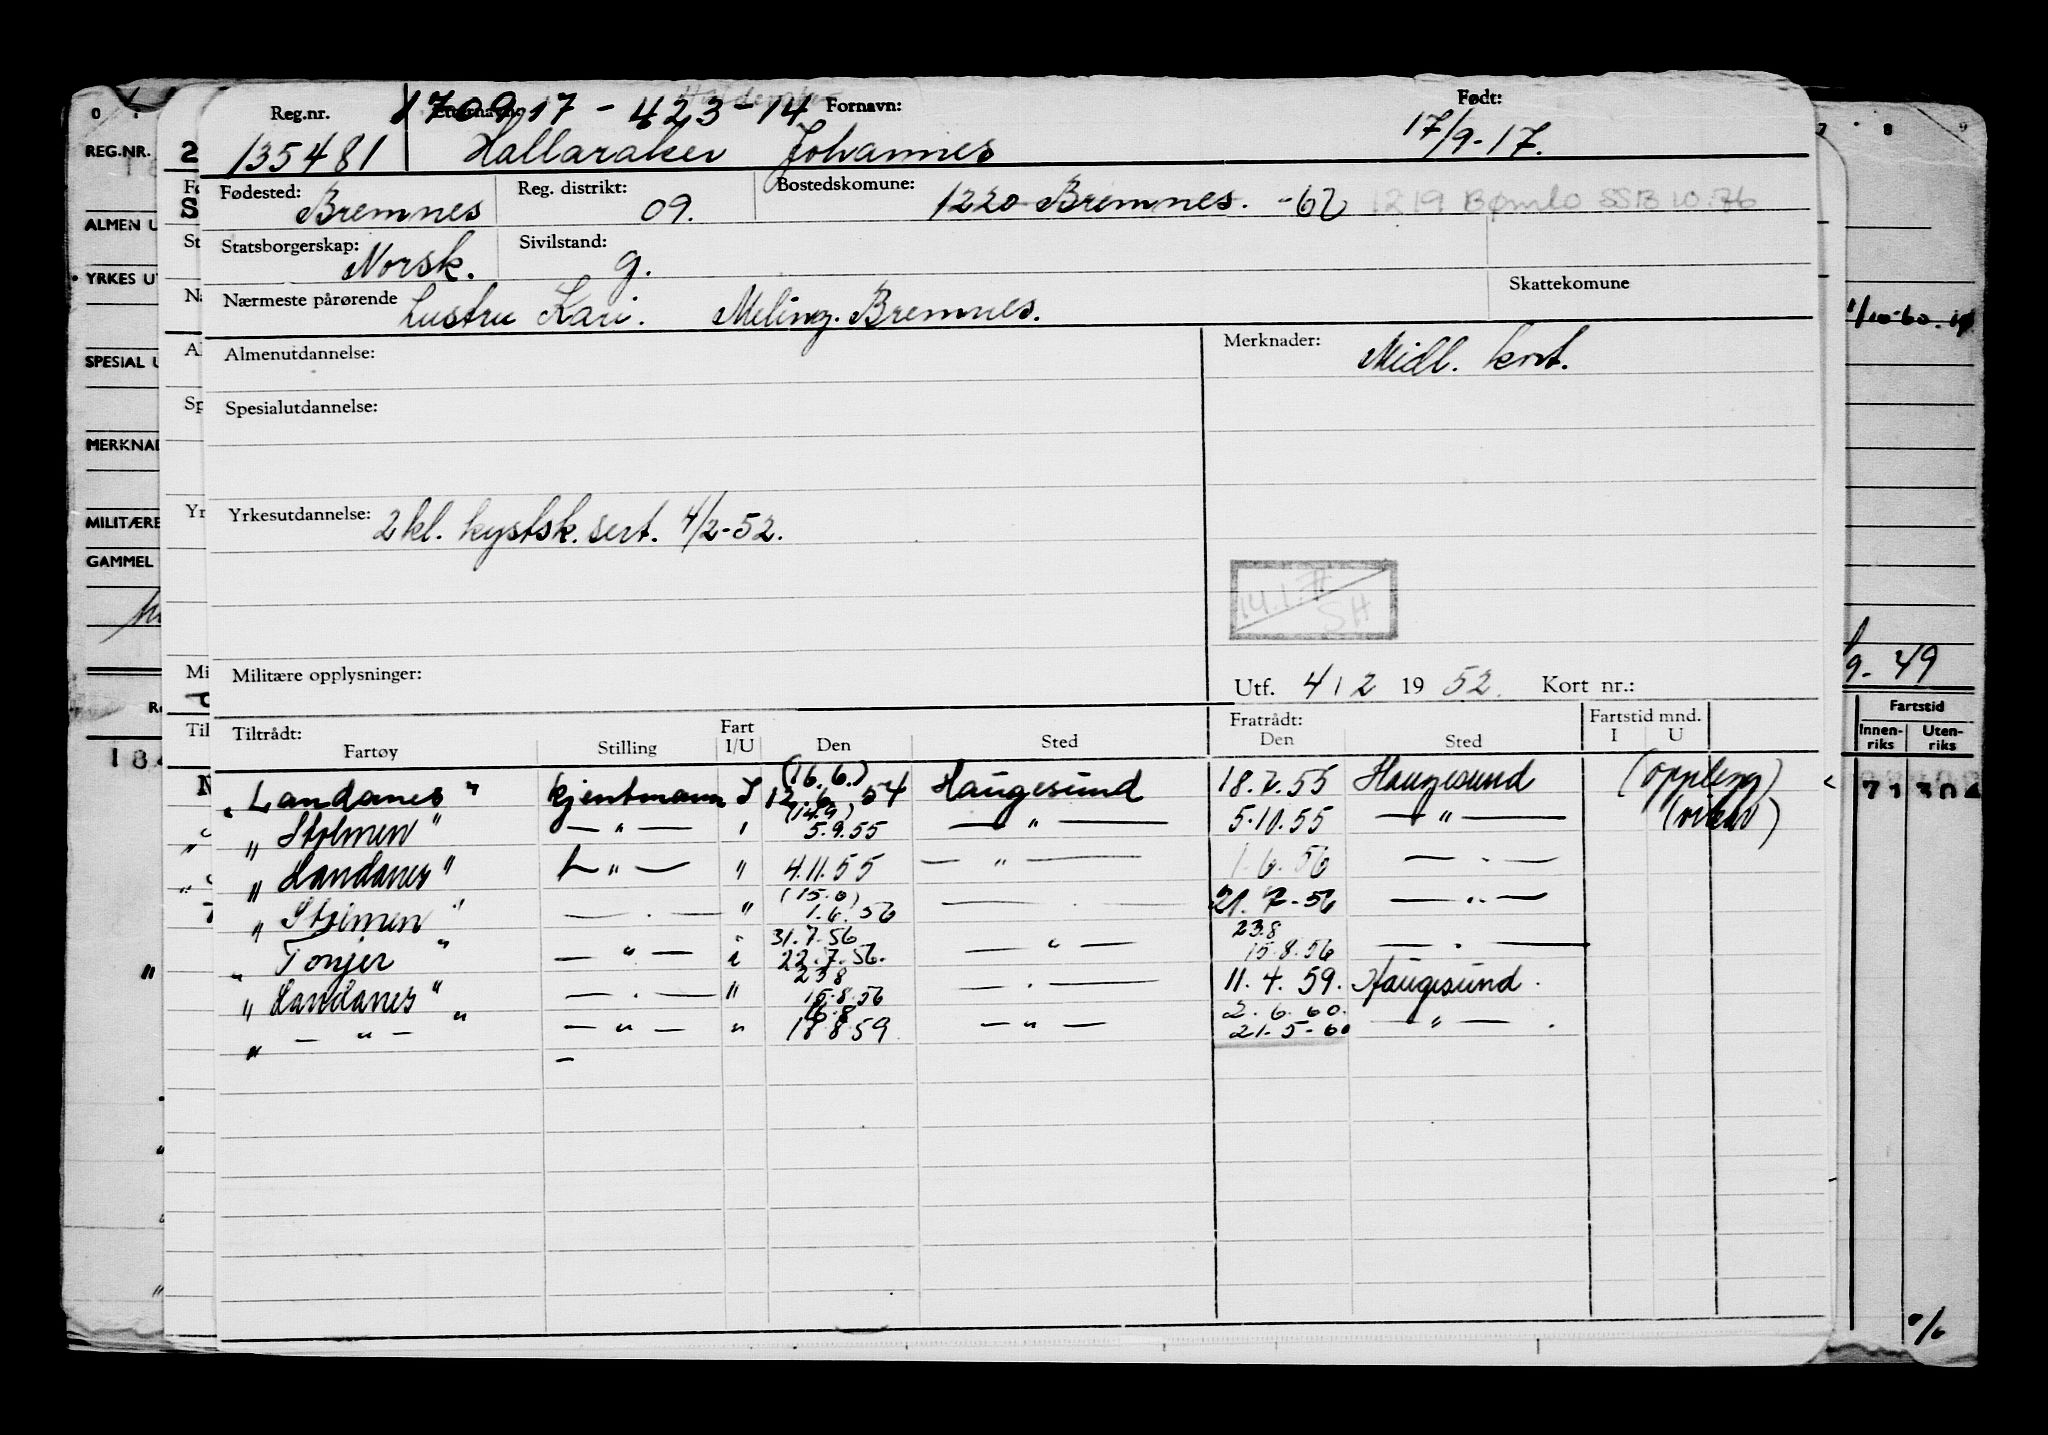 Reg.nr. 170917 - 423 - 14 Fornavn: Født:
135481 Hallaraker Johannes 17/9-17.
Fødested: Bremnes Reg. distrikt: 09. Bostedskomune: 1220 Bremnes. -62 1219 Bømlo SSB 10.76
Statsborgerskap: Norsk. Sivilstand: g.
Nærmeste pårørende Hustru Kari. Meling. Bremnes. Skattekomune
Almenutdannelse: Merknader: Midl. kort.
Spesialutdannelse:
Yrkesutdannelse: 2 kl. kystsk. sert. 4/2-52.
14.1.77
SH
Militære opplysninger: Utf. 4 / 2 19 52. Kort nr.:
Tiltrådt: Fratrådt: Fartstid mnd.
Fartøy Stilling Fart I/U Den Sted Den Sted I U
(16.6.)
"Landanes" kjentmann I 12.6.54 Haugesund 18.7.55 Haugesund (oppleng)
(14.9)
"Stolmen" — " — " 5.9.55 — " — 5.10.55 — " — (vikar)
"Landanes" — " — " 4.11.55 — " — 1.6.56 — " —
(15.6)
"Stolmen" — " — " 1.6.56 — " — 21.7-56 — " —
31.7.56 23.8
"Tonjer" — " — " 22.7.56. — " — 15.8.56 — " —
23 8
"Landanes" — " — " 15.8.56 — " — 11.4.59. Haugesund.
16.8 2.6.60.
" — " — — " — " 18 8.59. — " — 21.5-60 — " —
REG.NR.
ALMEN U
YRKES UT
SPESIAL U
MERKNAD
MILITÆRE
GAMMEL
1/10-60.
9-49
Fartstid
Innen-riks Uten-riks